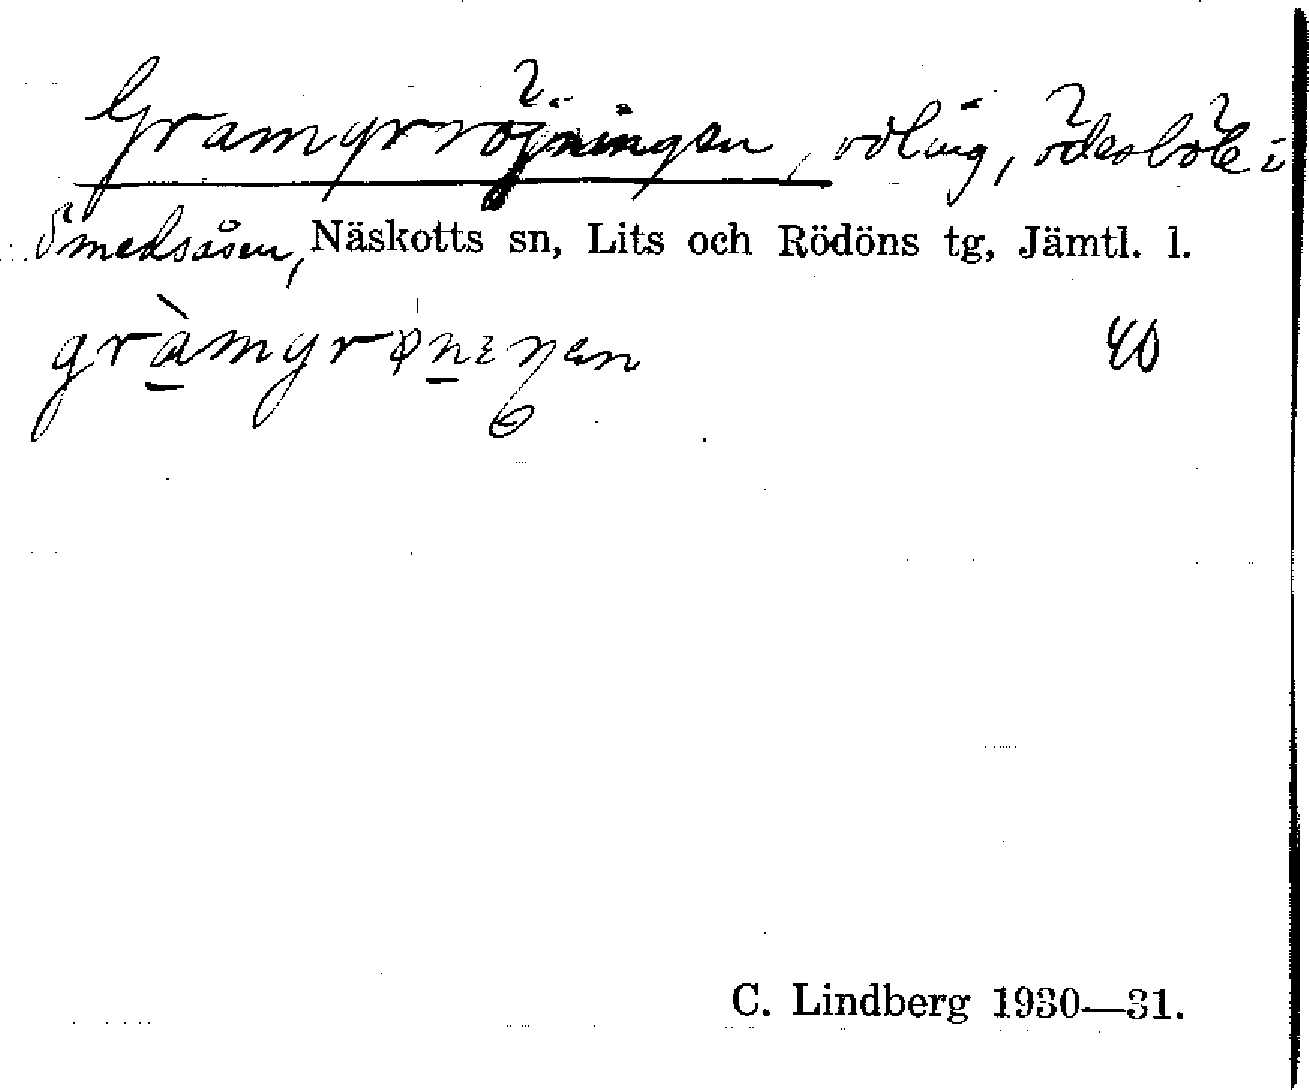 Gramyrröjningen, odling, ödesböle i
Smedsåsen, Näskotts sn, Lits och Rödöns tg, Jämtl. l.
gràmyrønıŋen
40
C. Lindberg 1930—31.